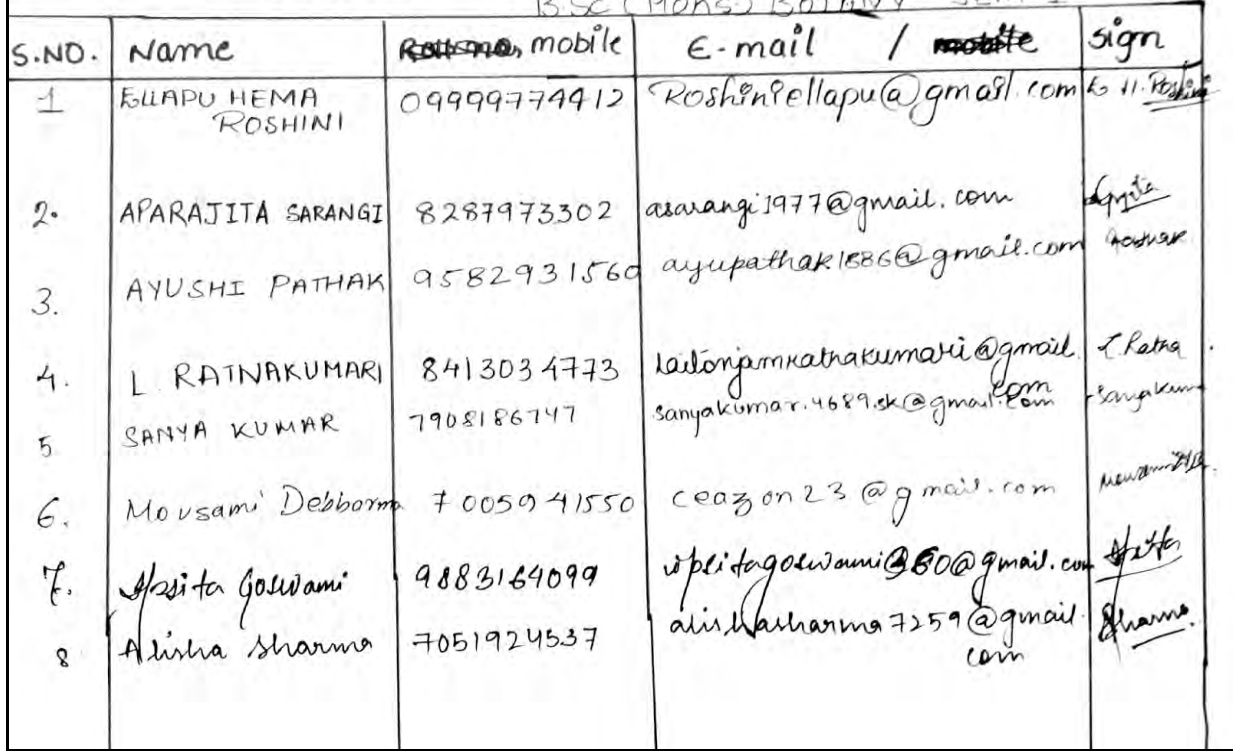 B.Sc (HONS) BOTANY SEM
S.NO. Name mobile E-mail / mobile sign
1 ELLAPU HEMA 09999774412 Roshiniellapu@gmail.com E. H. Roshini
ROSHINI
2. APARAJITA SARANGI 8287973302 asarangi1977@gmail.com
3. AYUSHI PATHAK 9582931560 ayupathak1886@gmail.com
4. L. RATNAKUMARI 8413034773 lailonjamratnakumari@gmail. L. Ratna
com
5. SANYA KUMAR 7908186747 sanyakumar.4689.sk@gmail.com Sanya kumar
6. Mousami Debbarma 7005941550 ceazon23@gmail.com
7. Ipsita Goswami 9883164099 ipsitagoswami360@gmail.com Ipsita
8 Alisha Sharma 7051924537 alishasharma7259@gmail. Sharma.
com